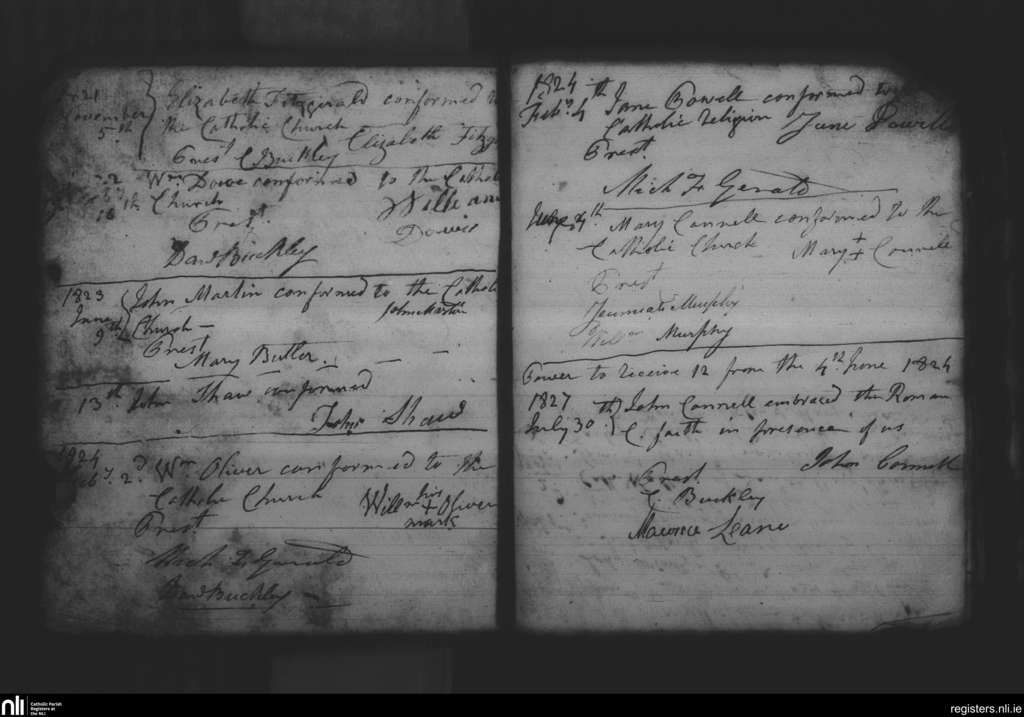 Elizabeth Fitzgerald conformed
November
the Catholic Church
5th
Elizabeth Fitzg
Prest C Buckley
Wm. Dowe conformed to the Cathol
16th Church
William
Prest.
Dowe
Dan Buckley
1823 John Martin conformed to the Cathol
June 9th Church
John Martin
Prest
Mary Butler.
13th John Shaw conformed
John Shaw
1824
Feb 2d. Wm Oliver conformed to the
Catholic Church
Willm his + Oliver
mark
Prest.
Mich Fz Gerald
Dan Buckley
1824
Feb. 4th Jane Powell conformed to
Catholic religion Jane Powell
Prest.
Mich Fz Gerald
4th. Mary Connell conformed to the
Catholic Church Mary + Connell
Prest
Murphy
Murphy
Power to receive 12 from the 4th. June 1824
1827
July 30th John Connell embraced the Roman
C. faith in presence of us
John Connell
Prest.
C. Buckley
Maurice Leane
nli
Catholic Parish
Registers at
the NLI
registers.nli.ie